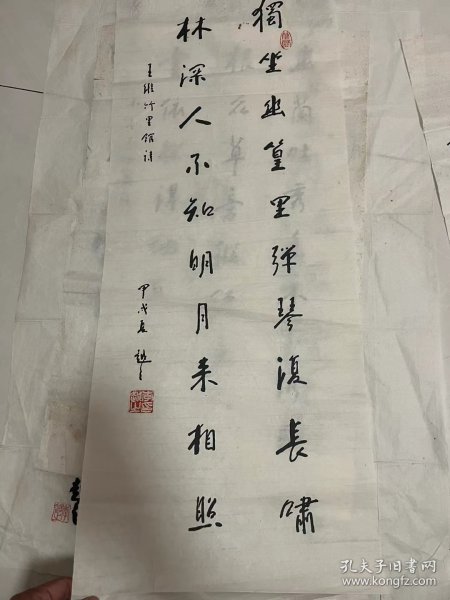 獨坐幽篁里彈琴復長嘯
林深人不知明月来相照
王維竹里館詩
甲戌夏
孔夫子旧书网
www.kongfz.com